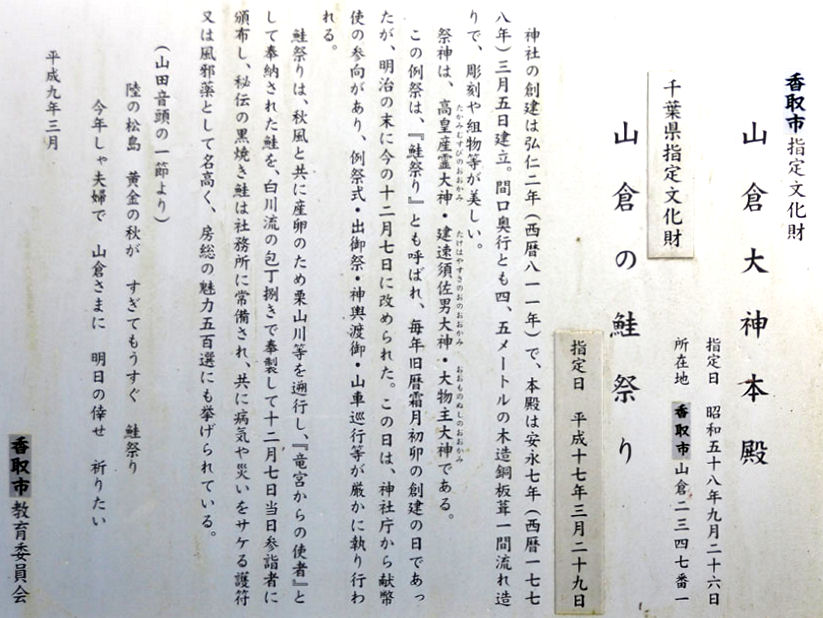 香取市指定文化財
山倉大神本殿
指定日 昭和五十八年九月二十六日
所在地 香取市山倉二三四七番一
千葉県指定文化財
山倉の鮭祭り
指定日 平成十七年三月二十九日
神社の創建は弘仁二年（西暦八一一年）で、本殿は安永七年（西暦一七七
八年）三月五日建立。間口奥行とも四、五メートルの木造銅板葺一間流れ造
りで、彫刻や組物等が美しい。
たかみむすびのおおかみ たけはやすさのおのおおかみ おおものぬしのおおかみ
祭神は、高皇産霊大神・建速須佐男大神・大物主大神である。
この例祭は、『鮭祭り』とも呼ばれ、毎年旧暦霜月初卯の創建の日であっ
たが、明治の末に今の十二月七日に改められた。この日は、神社庁から献幣
使の参向があり、例祭式・出御祭・神輿渡御・山車巡行等が厳かに執り行わ
れる。
鮭祭りは、秋風と共に産卵のため栗山川等を遡行し、『竜宮からの使者』と
して奉納された鮭を、白川流の包丁捌きで奉製して十二月七日当日参詣者に
頒布し、秘伝の黒焼き鮭は社務所に常備され、共に病気や災いをサケる護符
又は風邪薬として名高く、房総の魅力五百選にも挙げられている。
（山田音頭の一節より）
陸の松島 黄金の秋が すぎてもうすぐ 鮭祭り
今年しゃ夫婦で 山倉さまに 明日の倖せ 祈りたい
平成九年三月
香取市教育委員会